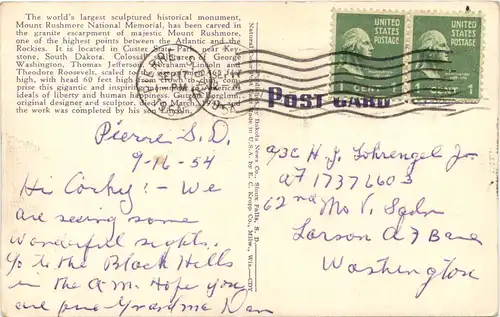 The world's largest sculptured historical monument,
Mount Rushmore National Memorial, has been carved in
the granite escarpment of majestic Mount Rushmore,
one of the highest points between the Atlantic and the
Rockies. It is located in Custer State Park near Key-
stone, South Dakota. Colossal figures of George
Washington, Thomas Jefferson, Abraham Lincoln and
Theodore Roosevelt, scaled to
high, with head 60 feet from chin to com-
prise this gigantic and inspiring American
ideals of liberty and human happiness. Gutzon Borglum,
original designer and sculptor, March, and
the work was completed by his son Lincoln.
UNITED
STATES
POSTAGE
1 CENT 1
UNITED
STATES
POSTAGE
CENT 1
PIERRE
SEP 17
PM
POST CARD
Dakota News Co., Sioux Falls, S. D.
Made in U.S.A. by E. C. Kropp Co., Milw., Wis.
Pierre S.D.
9-16-54
Hi Corky! - We
are seeing some
wonderful sights.
Go to the Black Hills
in the A.M. Hope you
are fine Grandma Dan
A/3C H. J. Lohrengel Jr.
AF 17376603
62nd Mo V. Sqdn
Larson A F Base
Washington